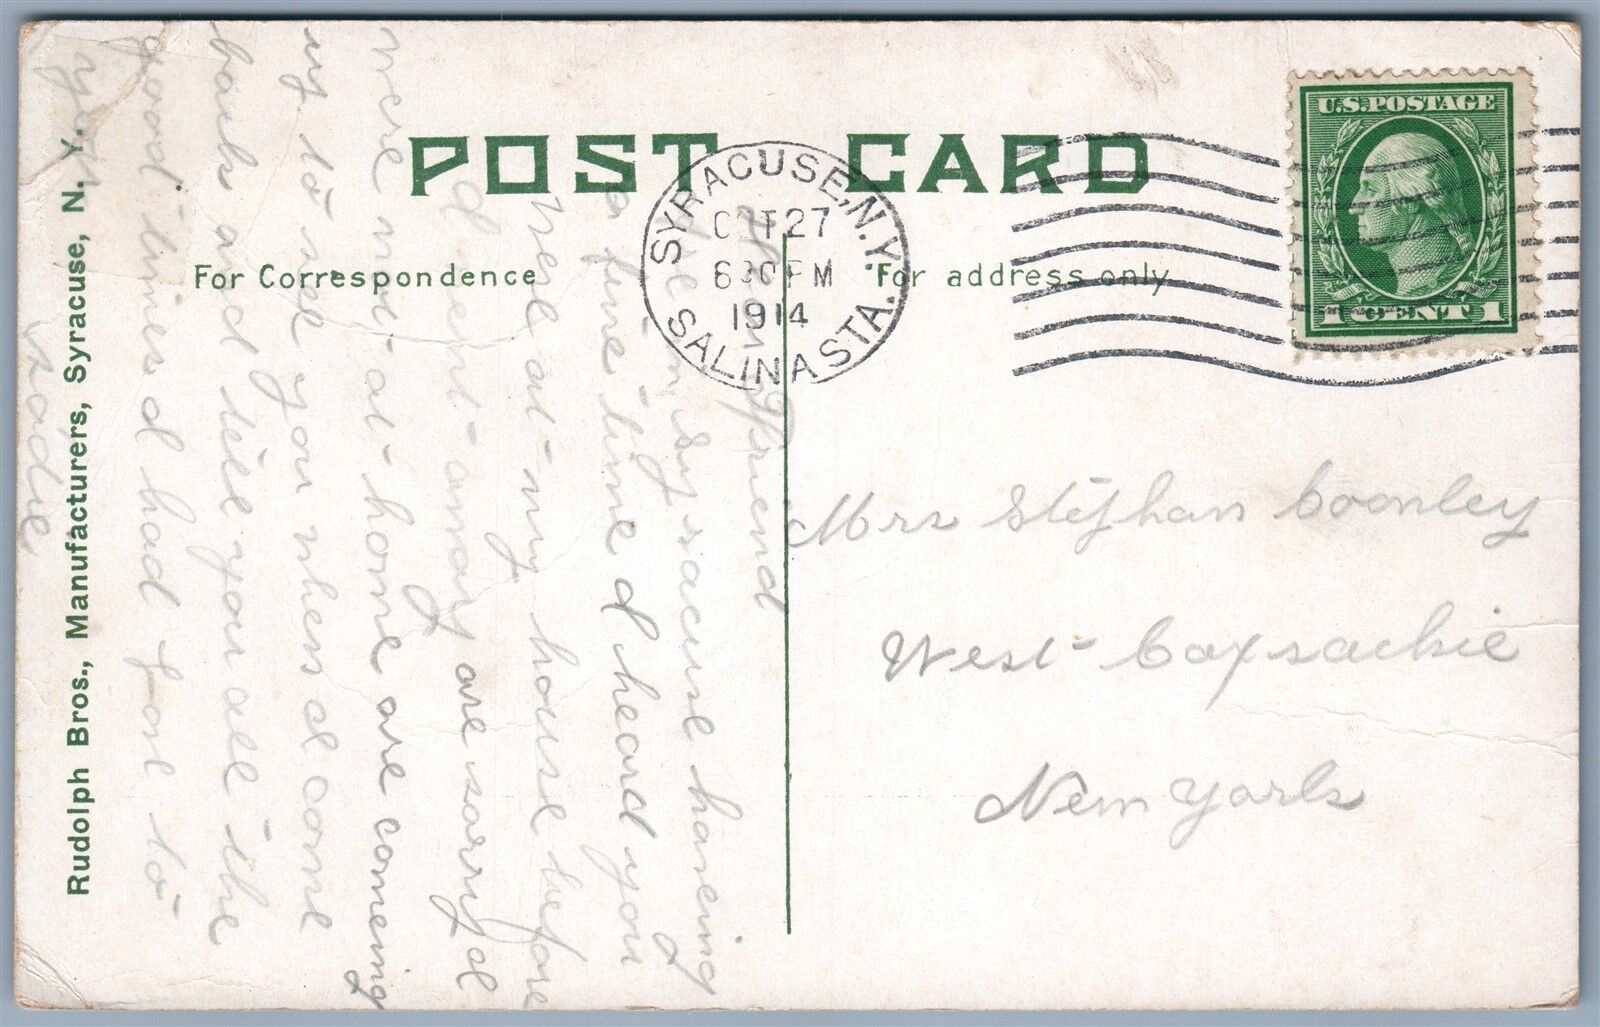 POST CARD
For Correspondence
For address only
SYRACUSE, N.Y.
OCT 27
630 PM
1914
SALINA STA.
U.S. POSTAGE
1 CENT 1
Mrs Stephan Coonley
West Coxsackie
New York
Friend
in Syracuse having
a fine time I heard you
were at my house before
I went away are sorry I
were not at home are comeing
up to see you when I come
back and tell you all the
good times I had love to
you
Sadie
Rudolph Bros., Manufacturers, Syracuse, N. Y.